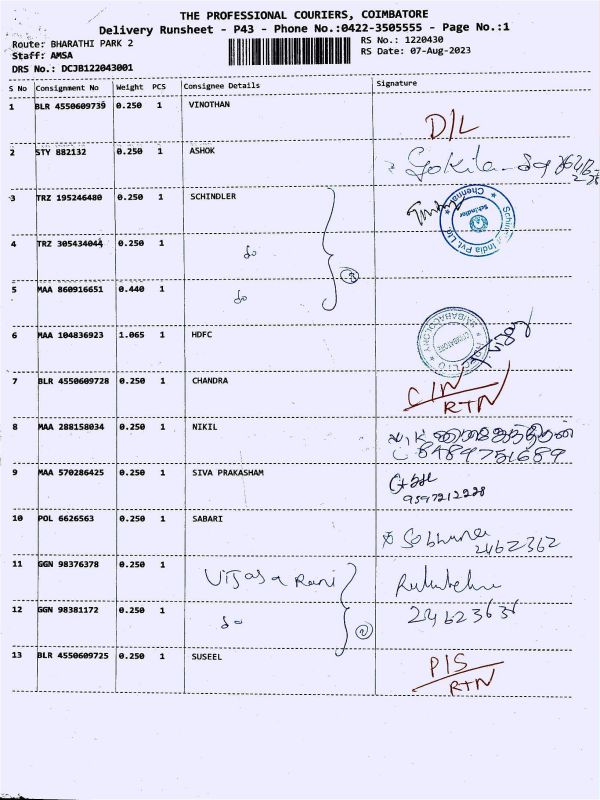 THE PROFESSIONAL COURIERS, COIMBATORE
Delivery Runsheet - P43 - Phone No.:0422-3505555 - Page No.:1
Route: BHARATHI PARK 2 RS No.: 1220430
Staff: AMSA RS Date: 07-Aug-2023
DRS No.: DCJB122043001
S No Consignment No Weight PCS Consignee Details Signature
1 BLR 4550609739 0.250 1 VINOTHAN
D/L
2 STY 882132 0.250 1 ASHOK
Gokila
3 TRZ 195246480 0.250 1 SCHINDLER
Schindler
Chennai
India Pvt. Ltd
4 TRZ 305434044 0.250 1 do
3
5 MAA 860916651 0.440 1 do
6 MAA 104836923 1.065 1 HDFC
SAIBABACOLONY
COIMBATORE
7 BLR 4550609728 0.250 1 CHANDRA
C/N
RTN
8 MAA 288158034 0.250 1 NIKIL
8489751689
9 MAA 570286425 0.250 1 SIVA PRAKASHAM
9597212228
10 POL 6626563 0.250 1 SABARI
Sobhana
2462362
11 GGN 98376378 0.250 1 Vijaya Rani
12 GGN 98381172 0.250 1 do 2
13 BLR 4550609725 0.250 1 SUSEEL
P/S
RTN